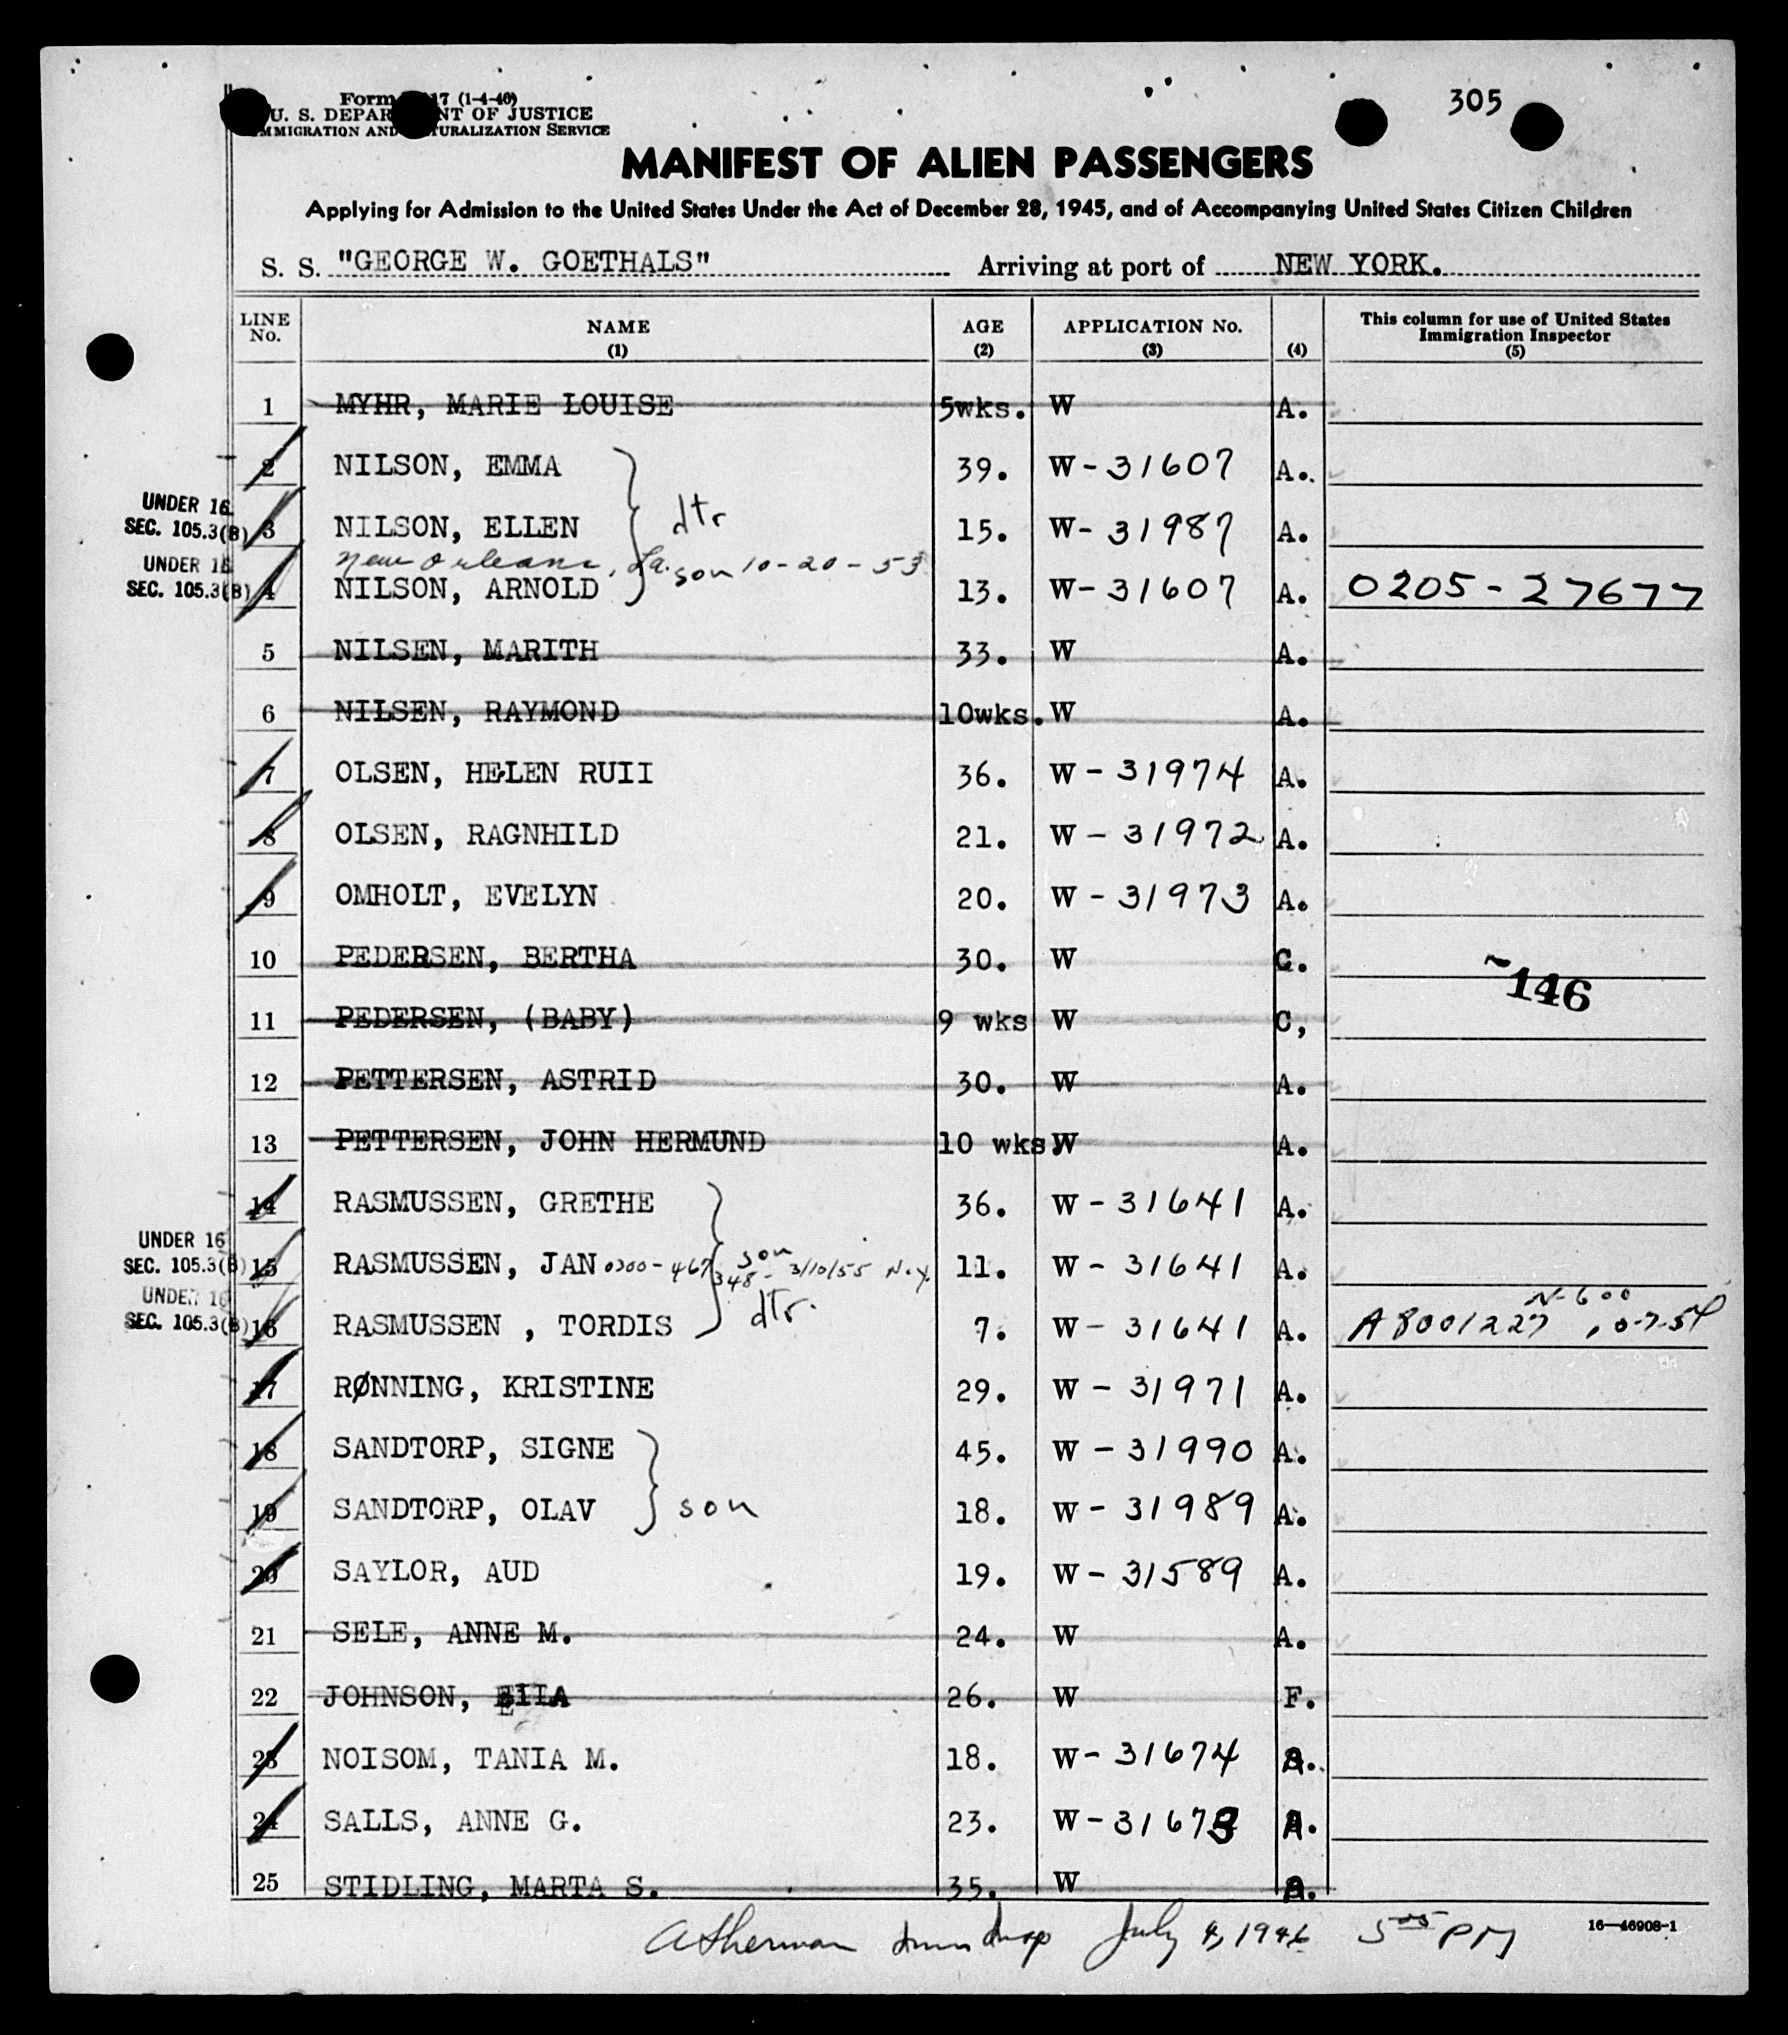 305
Form 17 (1-4-46)
U. S. DEPAR NT OF JUSTICE
MMIGRATION AND TURALIZATION SERVICE
MANIFEST OF ALIEN PASSENGERS
Applying for Admission to the United States Under the Act of December 28, 1945, and of Accompanying United States Citizen Children
S. S. "GEORGE W. GOETHALS" Arriving at port of NEW YORK.
LINE No. NAME (1) AGE (2) APPLICATION No. (3) (4) This column for use of United States Immigration Inspector (5)
1 MYHR, MARIE LOUISE 5wks. W A.
2 NILSON, EMMA 39. W-31607 A.
UNDER 16
SEC. 105.3(B) 3 NILSON, ELLEN dtr 15. W-31987 A.
New Orleans, La. 10-20-53
UNDER 16
SEC. 105.3(B) 4 NILSON, ARNOLD son 13. W-31607 A. 0205-27677
5 NILSEN, MARITH 33. W A.
6 NILSEN, RAYMOND 10wks. W A.
7 OLSEN, HELEN RUII 36. W-31974 A.
8 OLSEN, RAGNHILD 21. W-31972 A.
9 OMHOLT, EVELYN 20. W-31973 A.
10 PEDERSEN, BERTHA 30. W C.
146
11 PEDERSEN, (BABY) 9 wks W C,
12 PETTERSEN, ASTRID 30. W A.
13 PETTERSEN, JOHN HERMUND 10 wks W A.
14 RASMUSSEN, GRETHE 36. W-31641 A.
UNDER 16
SEC. 105.3(B) 15 RASMUSSEN, JAN 0300-467348-3/10/55 N.Y. son 11. W-31641 A.
UNDER 16
SEC. 105.3(B) 16 RASMUSSEN , TORDIS dtr. 7. W-31641 A. A8001227 N-600
17 RØNNING, KRISTINE 29. W-31971 A.
18 SANDTORP, SIGNE 45. W-31990 A.
19 SANDTORP, OLAV son 18. W-31989 A.
20 SAYLOR, AUD 19. W-31589 A.
21 SELE, ANNE M. 24. W A.
22 JOHNSON, 26. W F.
23 NOISOM, TANIA M. 18. W-31674 A.
24 SALLS, ANNE G. 23. W-31673 A.
25 STIDLING, MARTA S. 35. W A.
A Sherman July 4, 1946 5 05 PM
16—46908-1